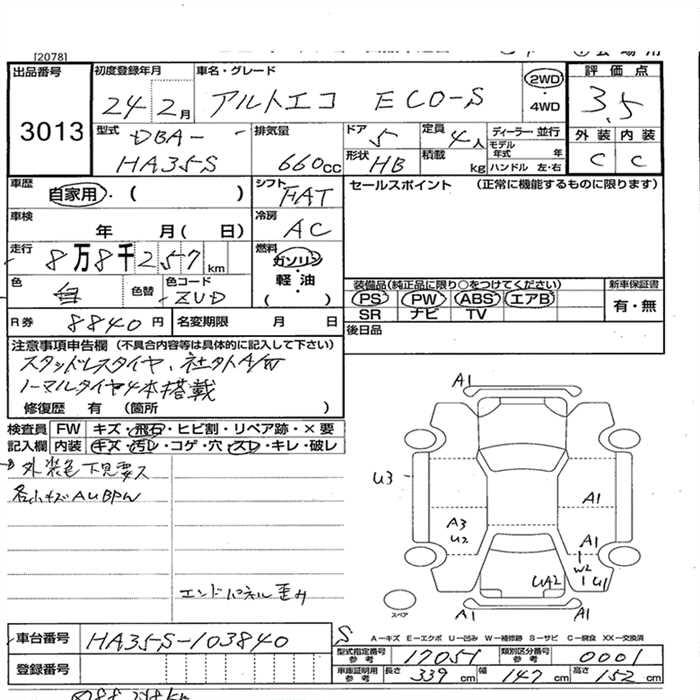 [2078]
出品番号
3013
初度登録年月
24 2月
車名・グレード
アルトエコ ECO-S
2WD
・
4WD
評価点
3.5
外装 内装
C C
型式
DBA-
HA35S
排気量
660cc
ドア
5
形状
HB
定員
4人
積載
kg
ディーラー・並行
モデル
年式 年
ハンドル 左・右
車歴
自家用・( )
シフト
FAT
セールスポイント (正常に機能するものに限ります)
車検
年 月( 日)
冷房
AC
走行
8万8千257km
燃料
ガソリン
・
軽・油
( )
色
白
色替
色コード
ZUD
装備品(純正品に限り○をつけてください)
PS PW ABS エアB
SR ナビ TV
新車保証書
有・無
R券 8840円
名変期限 月 日
後日品
注意事項申告欄 (不具合内容等は具体的に記入して下さい)
スタッドレスタイヤ、社外A/W
ノーマルタイヤ4本搭載
修復歴 有 (箇所 )
検査員
記入欄
FW キズ・飛石・ヒビ割・リペア跡・×要
内装 キズ・汚レ・コゲ・穴・スレ・キレ・破レ
外装色下見要ス
各小キズAUBPW
エンドパネル歪み
A1
U3
A3
U2
A1
A1
W2
U1
UA2
A1
A1
スペア
S
A-キズ E-エクボ U-凹み W-補修跡 S-サビ C-腐食 XX-交換済
車台番号
HA35S-103840
登録番号
型式指定番号
参考
17051
類別区分番号
参考
0001
車庫証明用
参考
長さ
339cm
幅
147cm
高さ
152cm